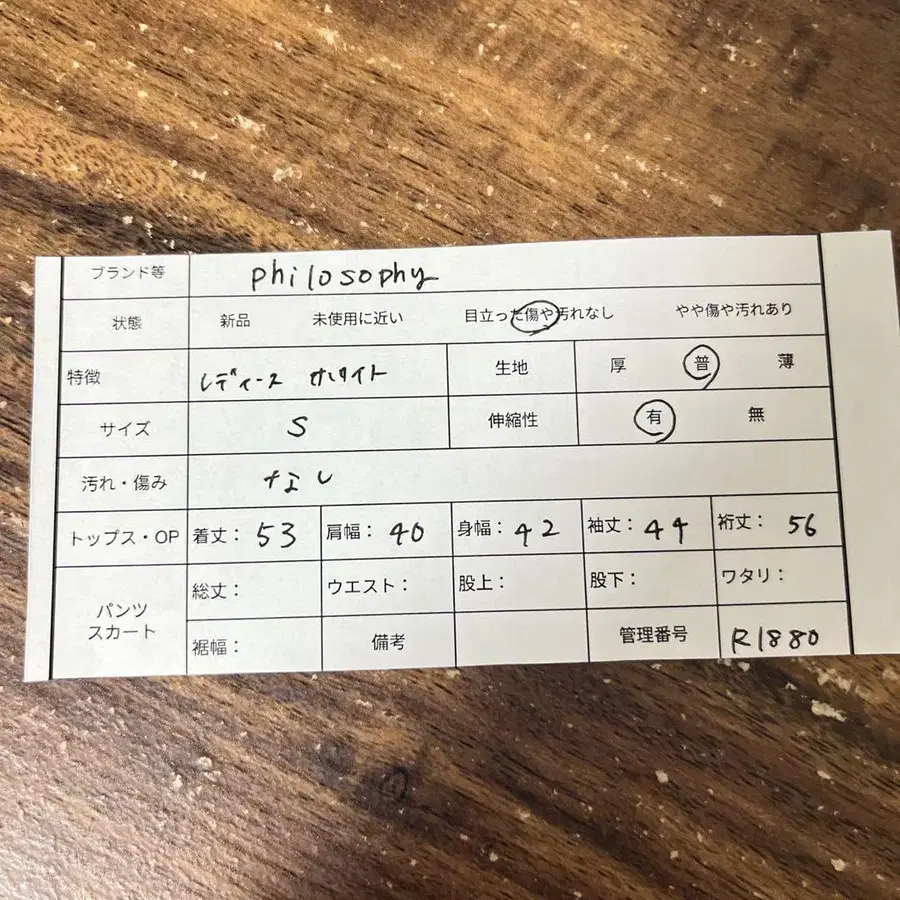 ブランド等 philosophy
状態 新品 未使用に近い 目立った傷や汚れなし やや傷や汚れあり
特徴 レディース ホワイト 生地 厚 普 薄
サイズ S 伸縮性 有 無
汚れ・傷み なし
トップス・OP 着丈: 53 肩幅: 40 身幅: 42 袖丈: 44 裄丈: 56
パンツ スカート 総丈: ウエスト: 股上: 股下: ワタリ:
裾幅: 備考 管理番号 R1880